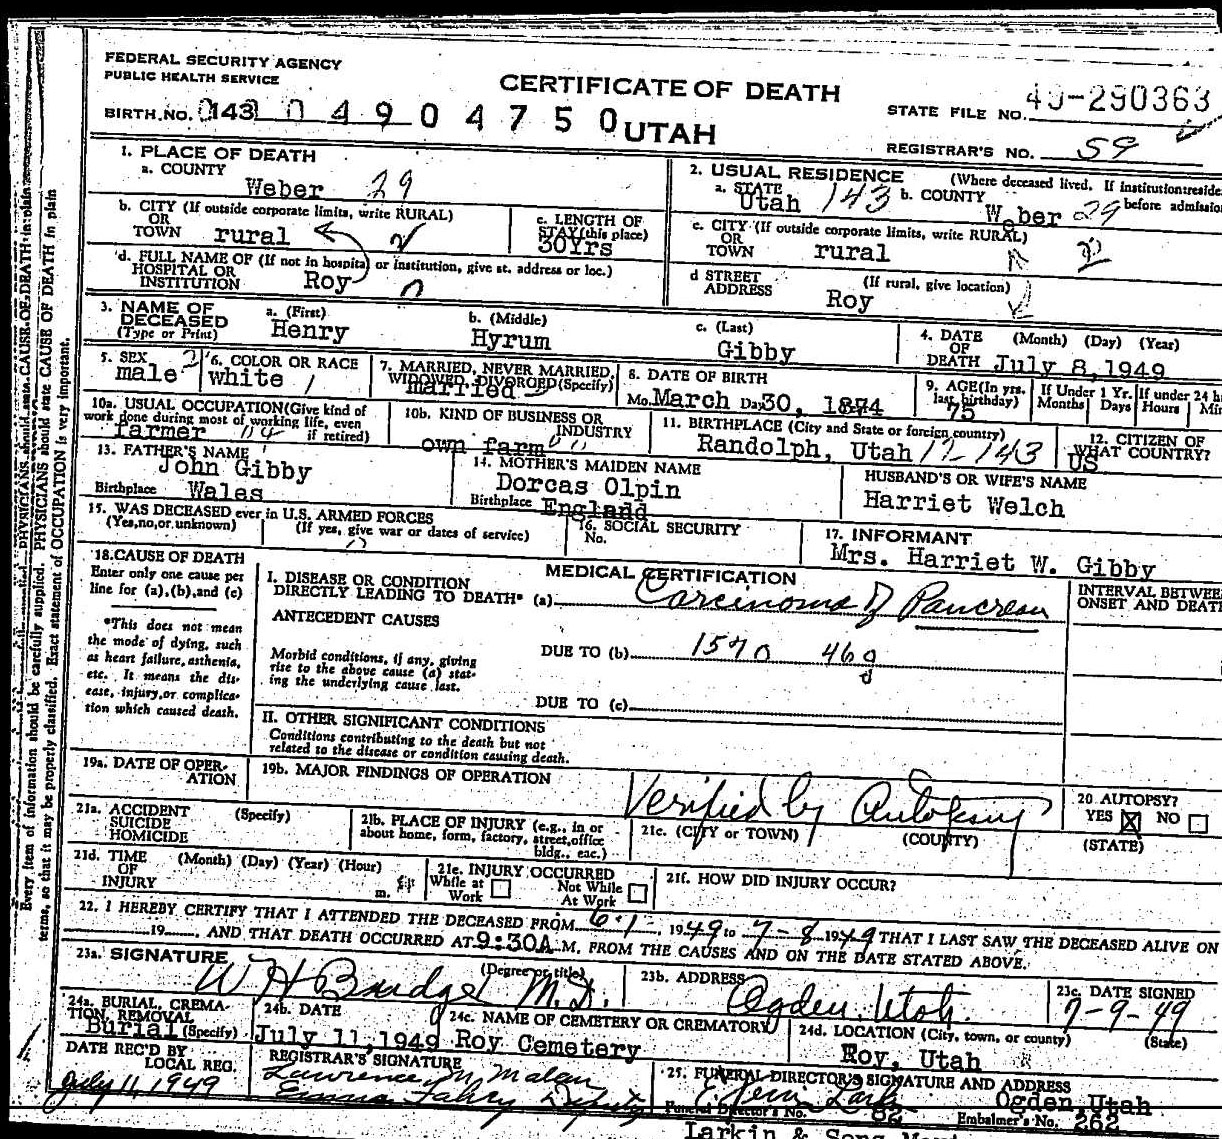 FEDERAL SECURITY AGENCY
PUBLIC HEALTH SERVICE
CERTIFICATE OF DEATH
STATE FILE NO. 49-290363
BIRTH NO. 143 0 4 9 0 4 7 5 0 UTAH
REGISTRAR'S NO. 59
1. PLACE OF DEATH
a. COUNTY
Weber 29
2. USUAL RESIDENCE (Where deceased lived. If institution:reside
before admission
a. STATE Utah 143 b. COUNTY Weber 29
b. CITY (If outside corporate limits, write RURAL)
OR
TOWN rural
c. LENGTH OF
STAY (this place)
30Yrs
c. CITY (If outside corporate limits, write RURAL)
OR
TOWN rural
d. FULL NAME OF (If not in hospital or institution, give st. address or loc.)
HOSPITAL OR
INSTITUTION Roy
d STREET (If rural, give location)
ADDRESS Roy
3. NAME OF
DECEASED
(Type or Print)
a. (First)
Henry
b. (Middle)
Hyrum
c. (Last)
Gibby
4. DATE (Month) (Day) (Year)
OF
DEATH July 8,1949
5. SEX
male 2
6. COLOR OR RACE
white 1
7. MARRIED, NEVER MARRIED,
WIDOWED, DIVORCED (Specify)
married
8. DATE OF BIRTH
Mo. March Day 30, 1874
9. AGE (In yrs.
last birthday)
75
If Under 1 Yr.
Months Days
If under 24 h
Hours Min
10a. USUAL OCCUPATION (Give kind of
work done during most of working life, even
if retired)
farmer
10b. KIND OF BUSINESS OR
INDUSTRY
own farm
11. BIRTHPLACE (City and State or foreign country)
Randolph, Utah 17-143
12. CITIZEN OF
WHAT COUNTRY?
US
13. FATHER'S NAME
John Gibby
Birthplace Wales
14. MOTHER'S MAIDEN NAME
Dorcas Olpin
Birthplace England
HUSBAND'S OR WIFE'S NAME
Harriet Welch
15. WAS DECEASED ever in U.S. ARMED FORCES
(Yes,no,or.unknown) (If yes, give war or dates of service)
16. SOCIAL SECURITY
No.
17. INFORMANT
Mrs. Harriet W. Gibby
18. CAUSE OF DEATH
Enter only one cause per
line for (a), (b), and (c)
*This does not mean
the mode of dying, such
as heart failure, asthenia,
etc. It means the dis-
ease, injury, or complica-
tion which caused death.
MEDICAL CERTIFICATION
I. DISEASE OR CONDITION
DIRECTLY LEADING TO DEATH* (a) Carcinoma of Pancreas
ANTECEDENT CAUSES
Morbid conditions, if any, giving
rise to the above cause (a) stat-
ing the underlying cause last.
DUE TO (b) 1570 46g
DUE TO (c)
INTERVAL BETWEE
ONSET AND DEATH
II. OTHER SIGNIFICANT CONDITIONS
Conditions contributing to the death but not
related to the disease or condition causing death.
19a. DATE OF OPER-
ATION
19b. MAJOR FINDINGS OF OPERATION
Verified by Autopsy
20. AUTOPSY?
YES ☒ NO ☐
21a. ACCIDENT (Specify)
SUICIDE
HOMICIDE
21b. PLACE OF INJURY (e.g., in or
about home, form, factory, street,office
bldg., eac.)
21c. (CITY or TOWN) (COUNTY) (STATE)
21d. TIME (Month) (Day) (Year) (Hour)
OF
INJURY m.
21e. INJURY OCCURRED
While at Work ☐ Not While At Work ☐
21f. HOW DID INJURY OCCUR?
22. I HEREBY CERTIFY THAT I ATTENDED THE DECEASED FROM 6-1- 1949 to 7-8 1949 THAT I LAST SAW THE DECEASED ALIVE ON
19 , AND THAT DEATH OCCURRED AT 9:30A M. FROM THE CAUSES AND ON THE DATE STATED ABOVE.
23a. SIGNATURE (Degree or title)
M.D.
23b. ADDRESS
Ogden, Utah.
23c. DATE SIGNED
7-9-49
24a. BURIAL, CREMA-
TION, REMOVAL
Burial (Specify)
24b. DATE
July 11,1949
24c. NAME OF CEMETERY OR CREMATORY
Roy Cemetery
24d. LOCATION (City, town, or county) (State)
Roy, Utah
DATE REC'D BY
LOCAL REG.
July 11, 1949
REGISTRAR'S SIGNATURE
Lawrence M. Malan
Deputy
25. FUNERAL DIRECTOR'S SIGNATURE AND ADDRESS
Ogden, Utah
Funeral Director's No. 82 Embalmer's No. 262
Larkin & Sons
Every item of information should be carefully supplied. PHYSICIANS should state CAUSE OF DEATH in plain
terms, so that it may be properly classified. Exact statement of OCCUPATION is very important.